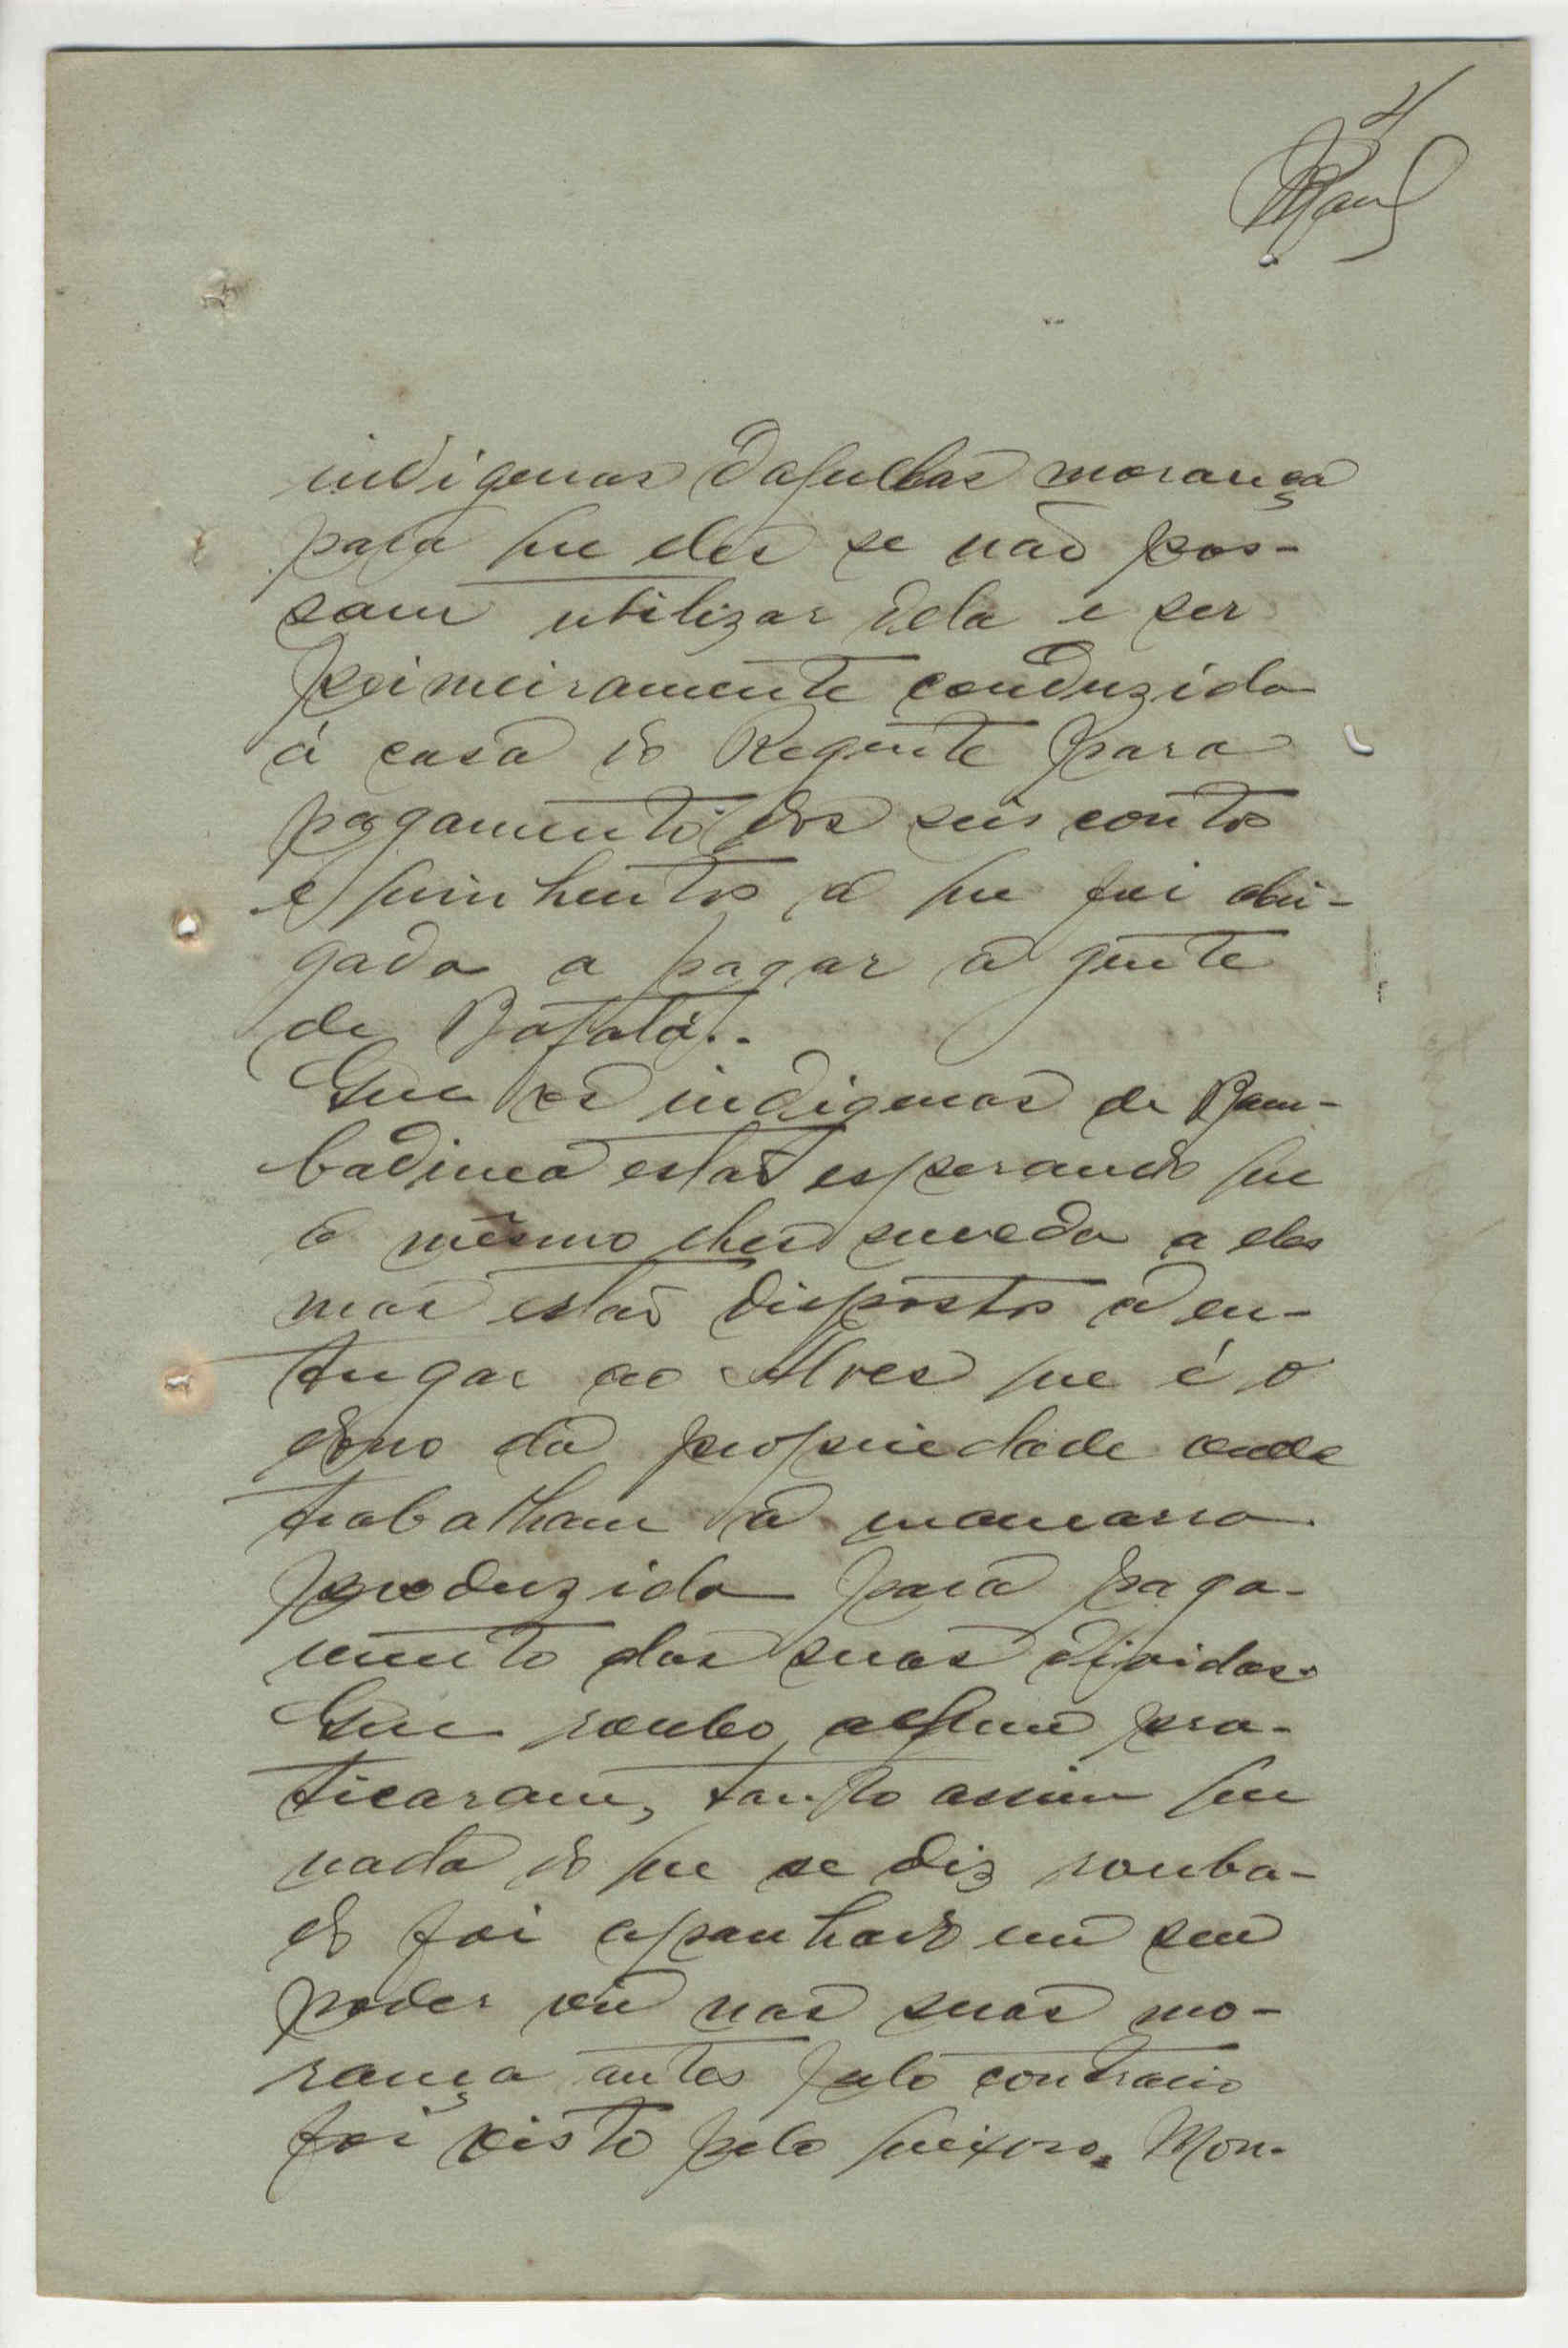 4
indigenas daquellas morança
para que eles se não pos-
sam utilizar dela e ser
primeiramente conduzida
á casa do Regente para
pagamento dos seis contos
e quinhentos a que foi obri-
gado a pagar a gente
de Bafatá.
Que os indigenas de Bam-
badinca estão esperando que
o mesmo lhes suceda a eles
mas estão dispostos a en-
tregar ao Alves que é o
dono da propriedade onde
trabalham a mancarra
produzida para paga-
mento das suas dividas.
Que roubo algum pra-
ticaram, tanto assim que
nada do que se diz rouba-
do foi apanhado em seu
poder ou nas suas mo-
rança antes pelo contrario
foi visto pelo queixoso. Mon-